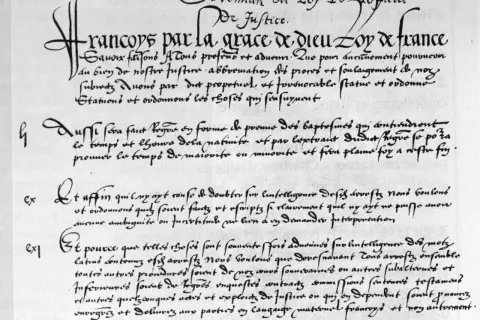 de Justice.
Francoys par la grace de dieu Roy de france
Scavoir faisons A tous presens et advenir Que pour aucunement pourveoir
au bien de nostre Justice abbreviation des proces et soulagement de noz
subiectz Avons par edict perpetuel et Irrevocable statue et ordonne
Statuons et ordonnons les choses qui sensuyvent
li Aussi sera faict Registre en forme de preuve des baptesmes qui contiendront
le temps et lheure de la nativite et par lextraict dudict Registre se pourra
prouver le temps de maiorite ou minorite et sera plaine foy a ceste fin
cx Et affin quil ny ayt cause de doubter sur lintelligence desd arrestz Nous voulons
et ordonnons quilz soient faictz et escriptz si clairement quil ny ayt ne puisse avoir
aucune ambiguite ou Incertitude ne lieu a en demander Interpretation
cxi Et pource que telles choses sont souventesfois advenues sur lintelligence des motz
latins contenuz esd arrestz Nous voulons que doresnavant Tous arrestz ensemble
toutes autres procedures soient de noz cours souveraines ou autres subalternes et
Inferieures soient de Registres enquestes contractz commissions sentences testamens
et autres quelzconques actes et exploictz de Justice ou qui en dependent soient prononcez
enregistrez et delivrez aux parties en langaige maternel francoys et non autrement